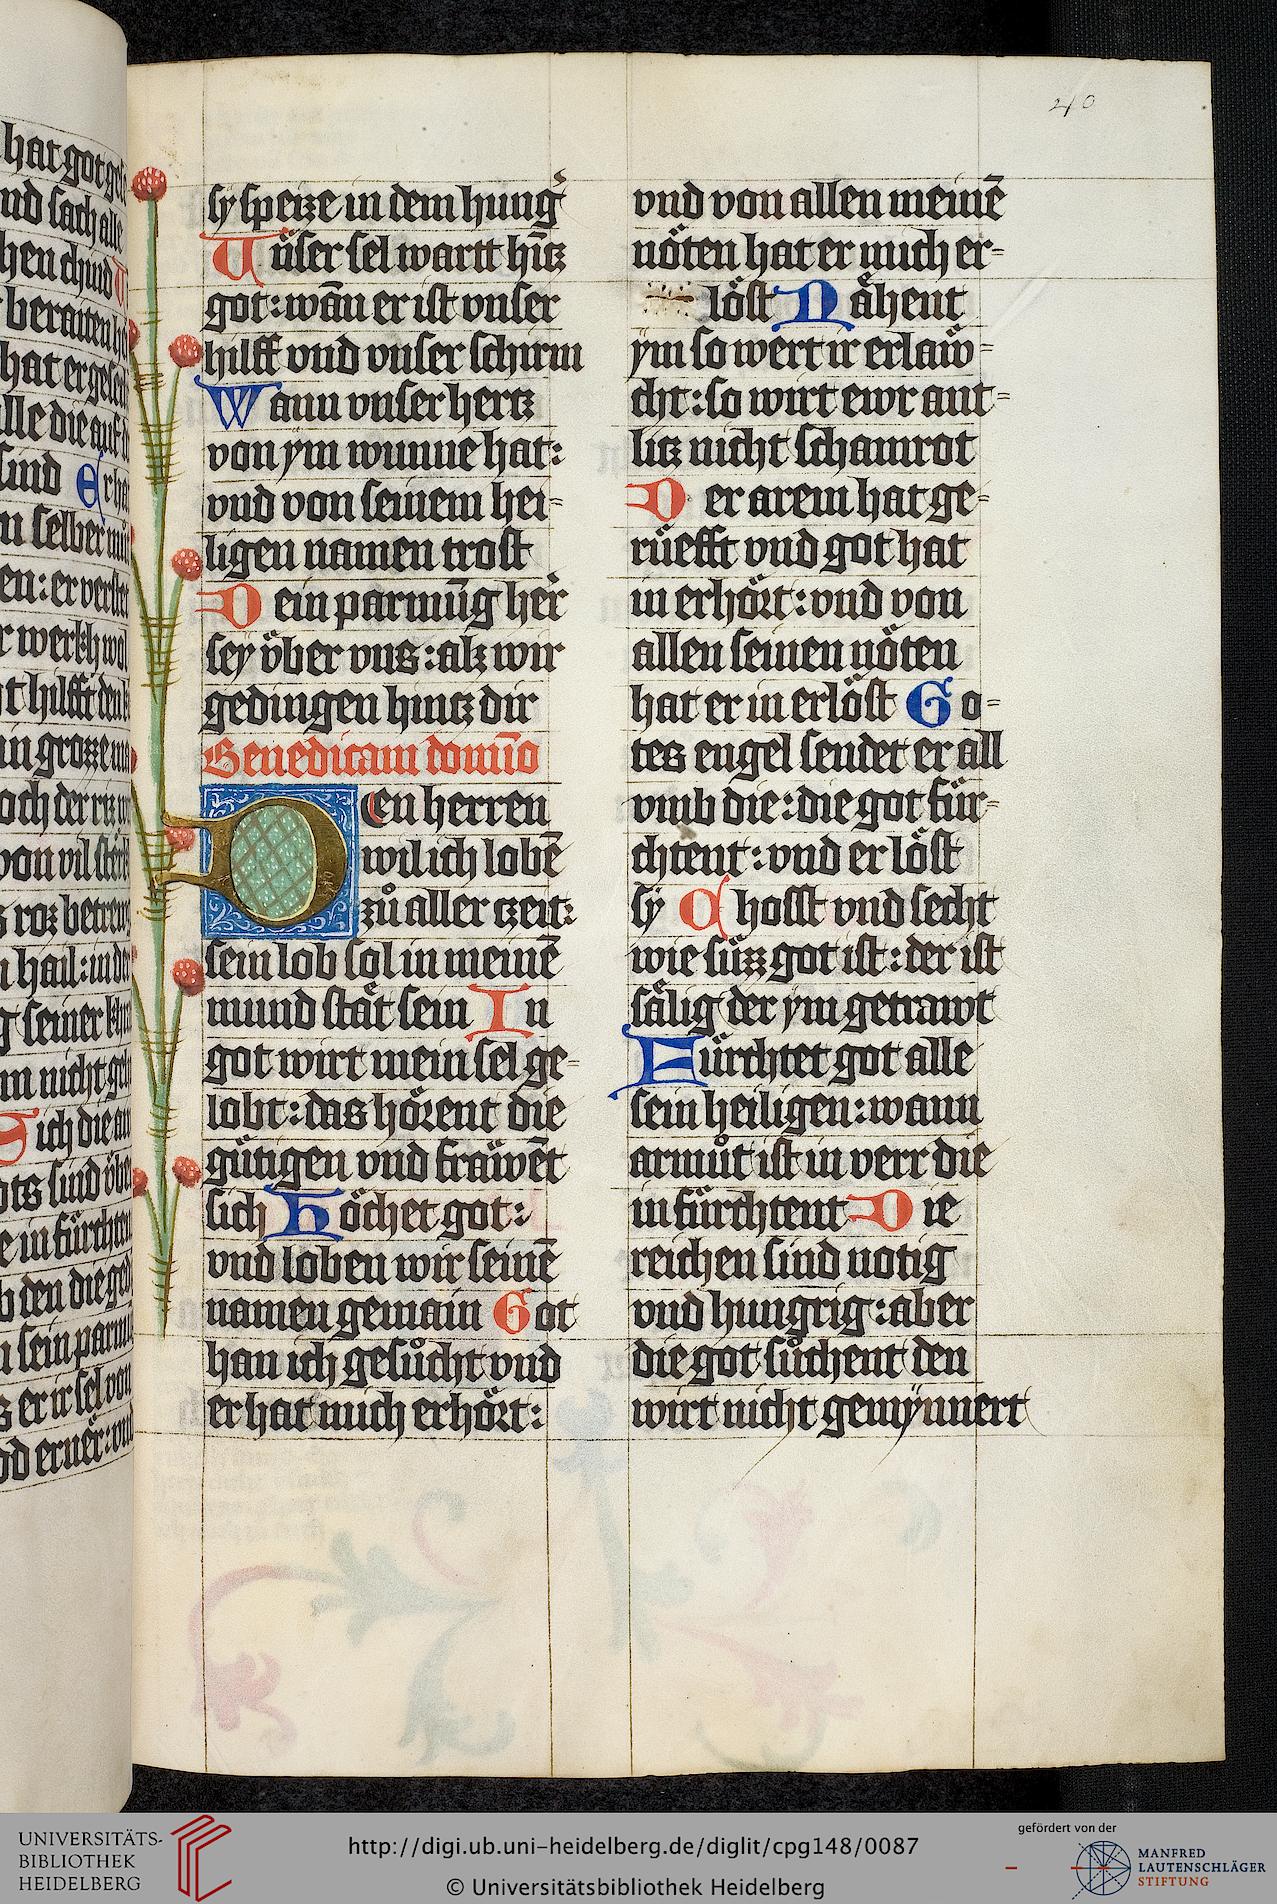 40
sy speize in dem hung̉
Unser sel wartt hi̅tz
got : wa̅n er ist vnser
hilff vnd vnser schirm
Wann vnser hertz
von ym wunne hat :
vnd von seinem hei=
ligen namen trost
Dein parmu̅g her̉
sey öber vns : alz wir
gedingen hintz dir
Benedicam domi̅o
Den herren
wil ich lobe̅
zů aller czeit :
sein lob sol in meine̅
mund stät sein In
got wirt mein sel ge=
lobt : das hörent die
gütigen vnd fräwe̅t
sich Höchet got :
vnd loben wir seine̅
namen gemain Got
han ich gesůcht vnd
er hat mich erhört :
vnd von allen meine̅
nöten hat er mich er=
löst Nähent
ÿm so wert ir erlaw̎=
cht : so wirt ewr ant=
litz nicht schamrot
Der arem hat ge=
rüefft vnd got hat
in erhört : vnd von
allen seinen nöten
hat er in erlöst Go=
tes engel sendet er all
vmb die : die got für=
chtent : vnd er löst
sy Chosst vnd secht
wie süzz got ist : der ist
sälig der ym getrawt
Fürchtet got alle
sein heiligen : wann
armůt ist in verr die
in fürchtent Die
reichen sind notig
vnd hungrig : aber
die got sůchent den
wirt nicht gemynnert
UNIVERSITÄTS-
BIBLIOTHEK
HEIDELBERG
http://digi.ub.uni-heidelberg.de/diglit/cpg148/0087
© Universitätsbibliothek Heidelberg
gefördert von der
MANFRED
LAUTENSCHLÄGER
STIFTUNG